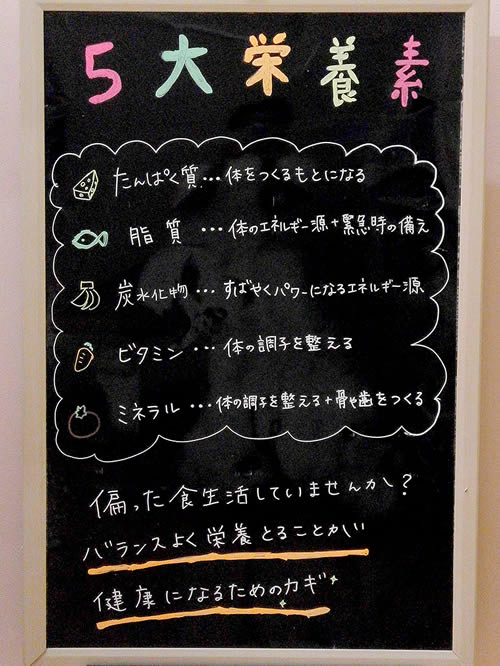 5大栄養素
たんぱく質…体をつくるもとになる
脂質…体のエネルギー源+緊急時の備え
炭水化物…すばやくパワーになるエネルギー源
ビタミン…体の調子を整える
ミネラル…体の調子を整える+骨や歯をつくる
偏った食生活していませんか?
バランスよく栄養とることがが
健康になるためのカギ